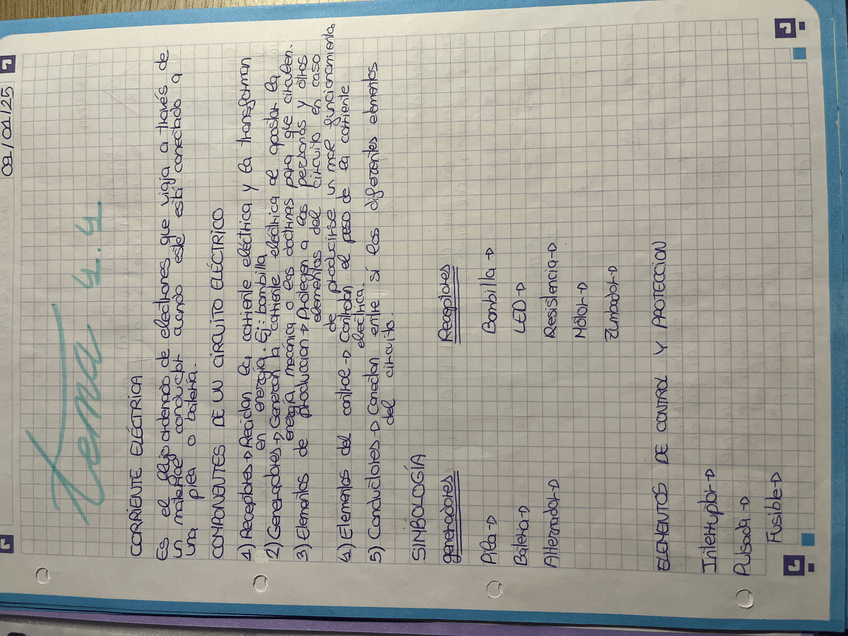 02/04/25
tema 4.4.
CORRIENTE ELÉCTRICA
Es el flujo ordenado de electrones que viaja a través de
un material conductor cuando este está conectado a
una pila o batería.
COMPONENTES DE UN CIRCUITO ELÉCTRICO
1) Receptores → Reciben la corriente eléctrica y la transforman
en energía. Ej: bombilla
2) Generadores → Generan la corriente eléctrica al aportar la
energía mecánica a los electrones para que circulen.
3) Elementos de producción → Protegen a las personas y otros
elementos del circuito en caso
de producirse un mal funcionamiento
4) Elementos del control → Controlan el paso de la corriente
eléctrica.
5) Conductores → Conectan entre si los diferentes elementos
del circuito.
SIMBOLOGÍA
generadores
Pila →
Batería →
Alternador →
Receptores
Bombilla →
LED →
Resistencia →
Mótor →
Zumbador →
ELEMENTOS DE CONTROL Y PROTECCION
Interruptor →
Pulsador →
Fusible →